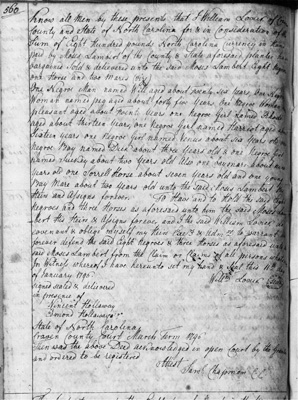 560.
Know all Men by these presents that I William Lovick of
County and State of North Carolina for & in Consideration of the
Sum of Eight Hundred pounds North Carolina Currency in hand
paid by Moses Lambert of the County & State aforesaid planter
bargained Sold & delivered unto the said Moses Lambert Eight
one Horse and two Mares
One Negro Man named Will aged about twenty six Years One Negro
Woman named peg aged about forty five Years One Negro Woman
pleasant aged about twenty Years one Negro Girl named
aged about thirteen Years, one Negro Girl named Harriot aged
Sixteen Years one Negro Girl named Venus about Six Years old
Negro Boy named about three Years old & one Negro
named about two Years old Also one about
Years old one Sorrell Horse about seven Years old and one young
Bay Mare about two Years old unto the said Moses Lambert his
Heirs and Assigns forever. To Have and to Hold the said
Negroes and three Horses as aforesaid unto him the said Moses
Lambert his Heirs & Assigns forever and I the said William Lovick
covenant & oblige myself my Heirs to warrant
forever defend the said Eight Negroes & three Horses as aforesaid unto
said Moses Lambert from the Claim or Claims of all persons
In Witness whereof I have hereunto set my hand & Seal this
of January 1796
Willm Lovick
signed sealed & delivered
in presence of
Vincent Hollaway
Hollaway
State of North Carolina
Craven County Court March Term 1796
Then was the above Deed acknowledged in open Court by the
and ordered to be registered
Attest
Saml Chapman C.C.